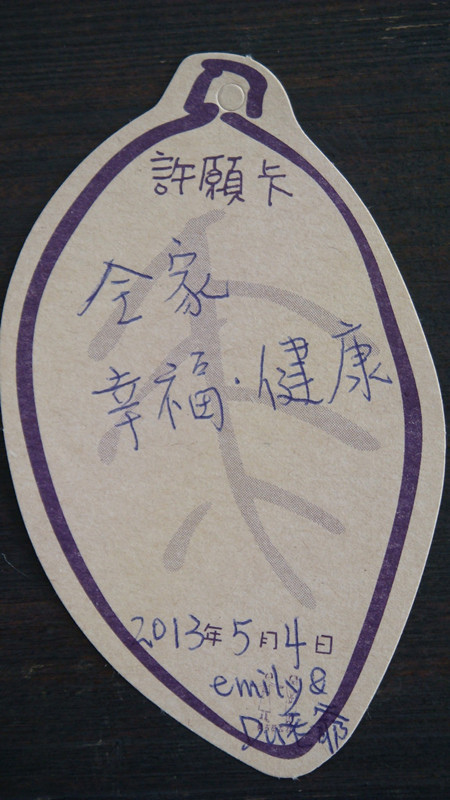 許願卡
全家
幸福·健康
2013年5月4日
emily &
Du